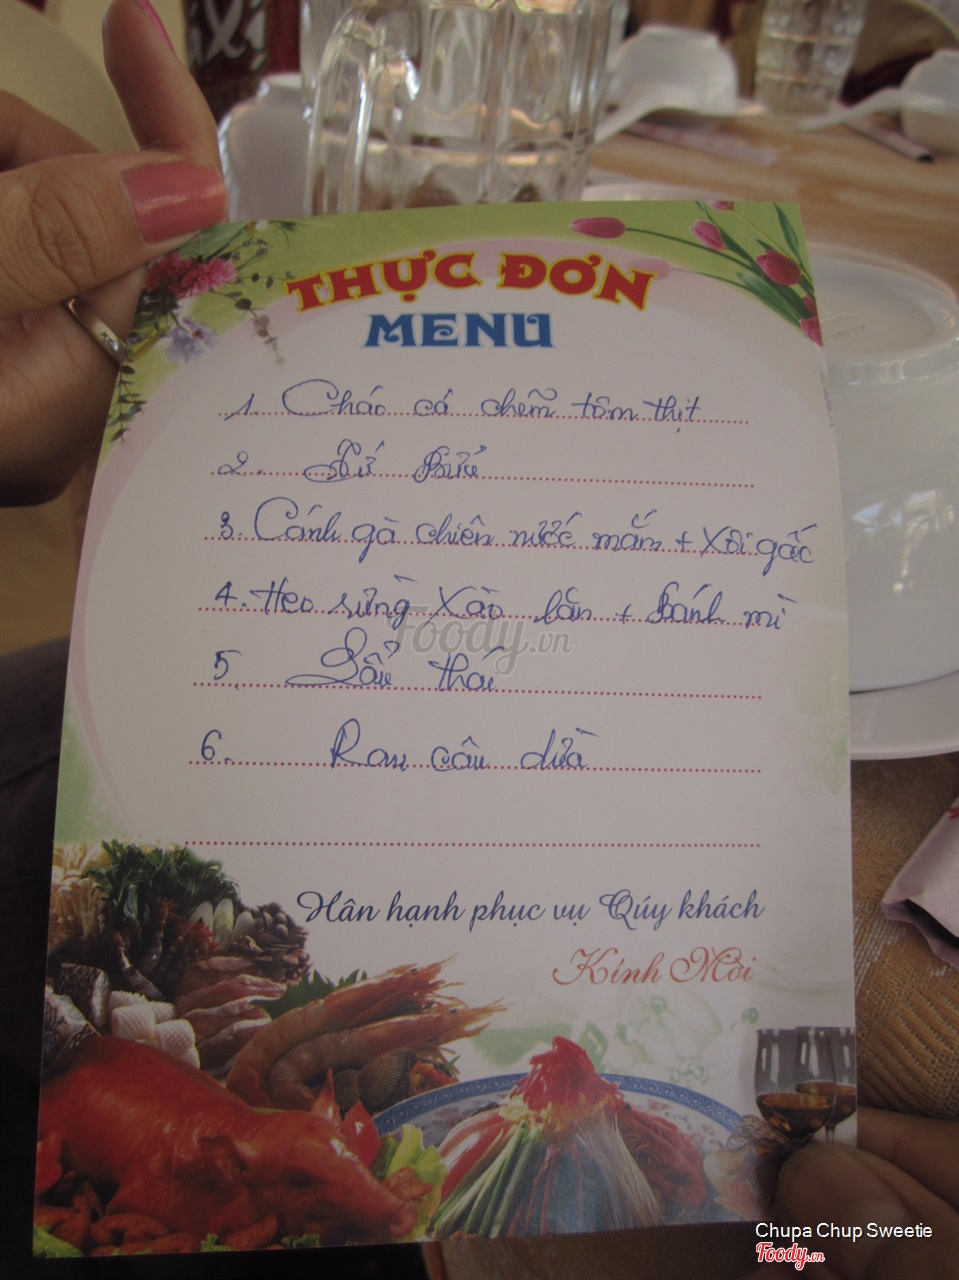 THỰC ĐƠN
MENU
1. Cháo cá chẽm tôm thịt
2. Tứ Bửu
3. Cánh gà chiên nước mắm + Xôi gấc
4. Heo rừng Xào lăn + Bánh mì
5. Lẩu thái
6. Rau câu dừa
Foody.vn
Hân hạnh phục vụ Qúy khách
Kính Mời
Chupa Chup Sweetie
Foody.vn